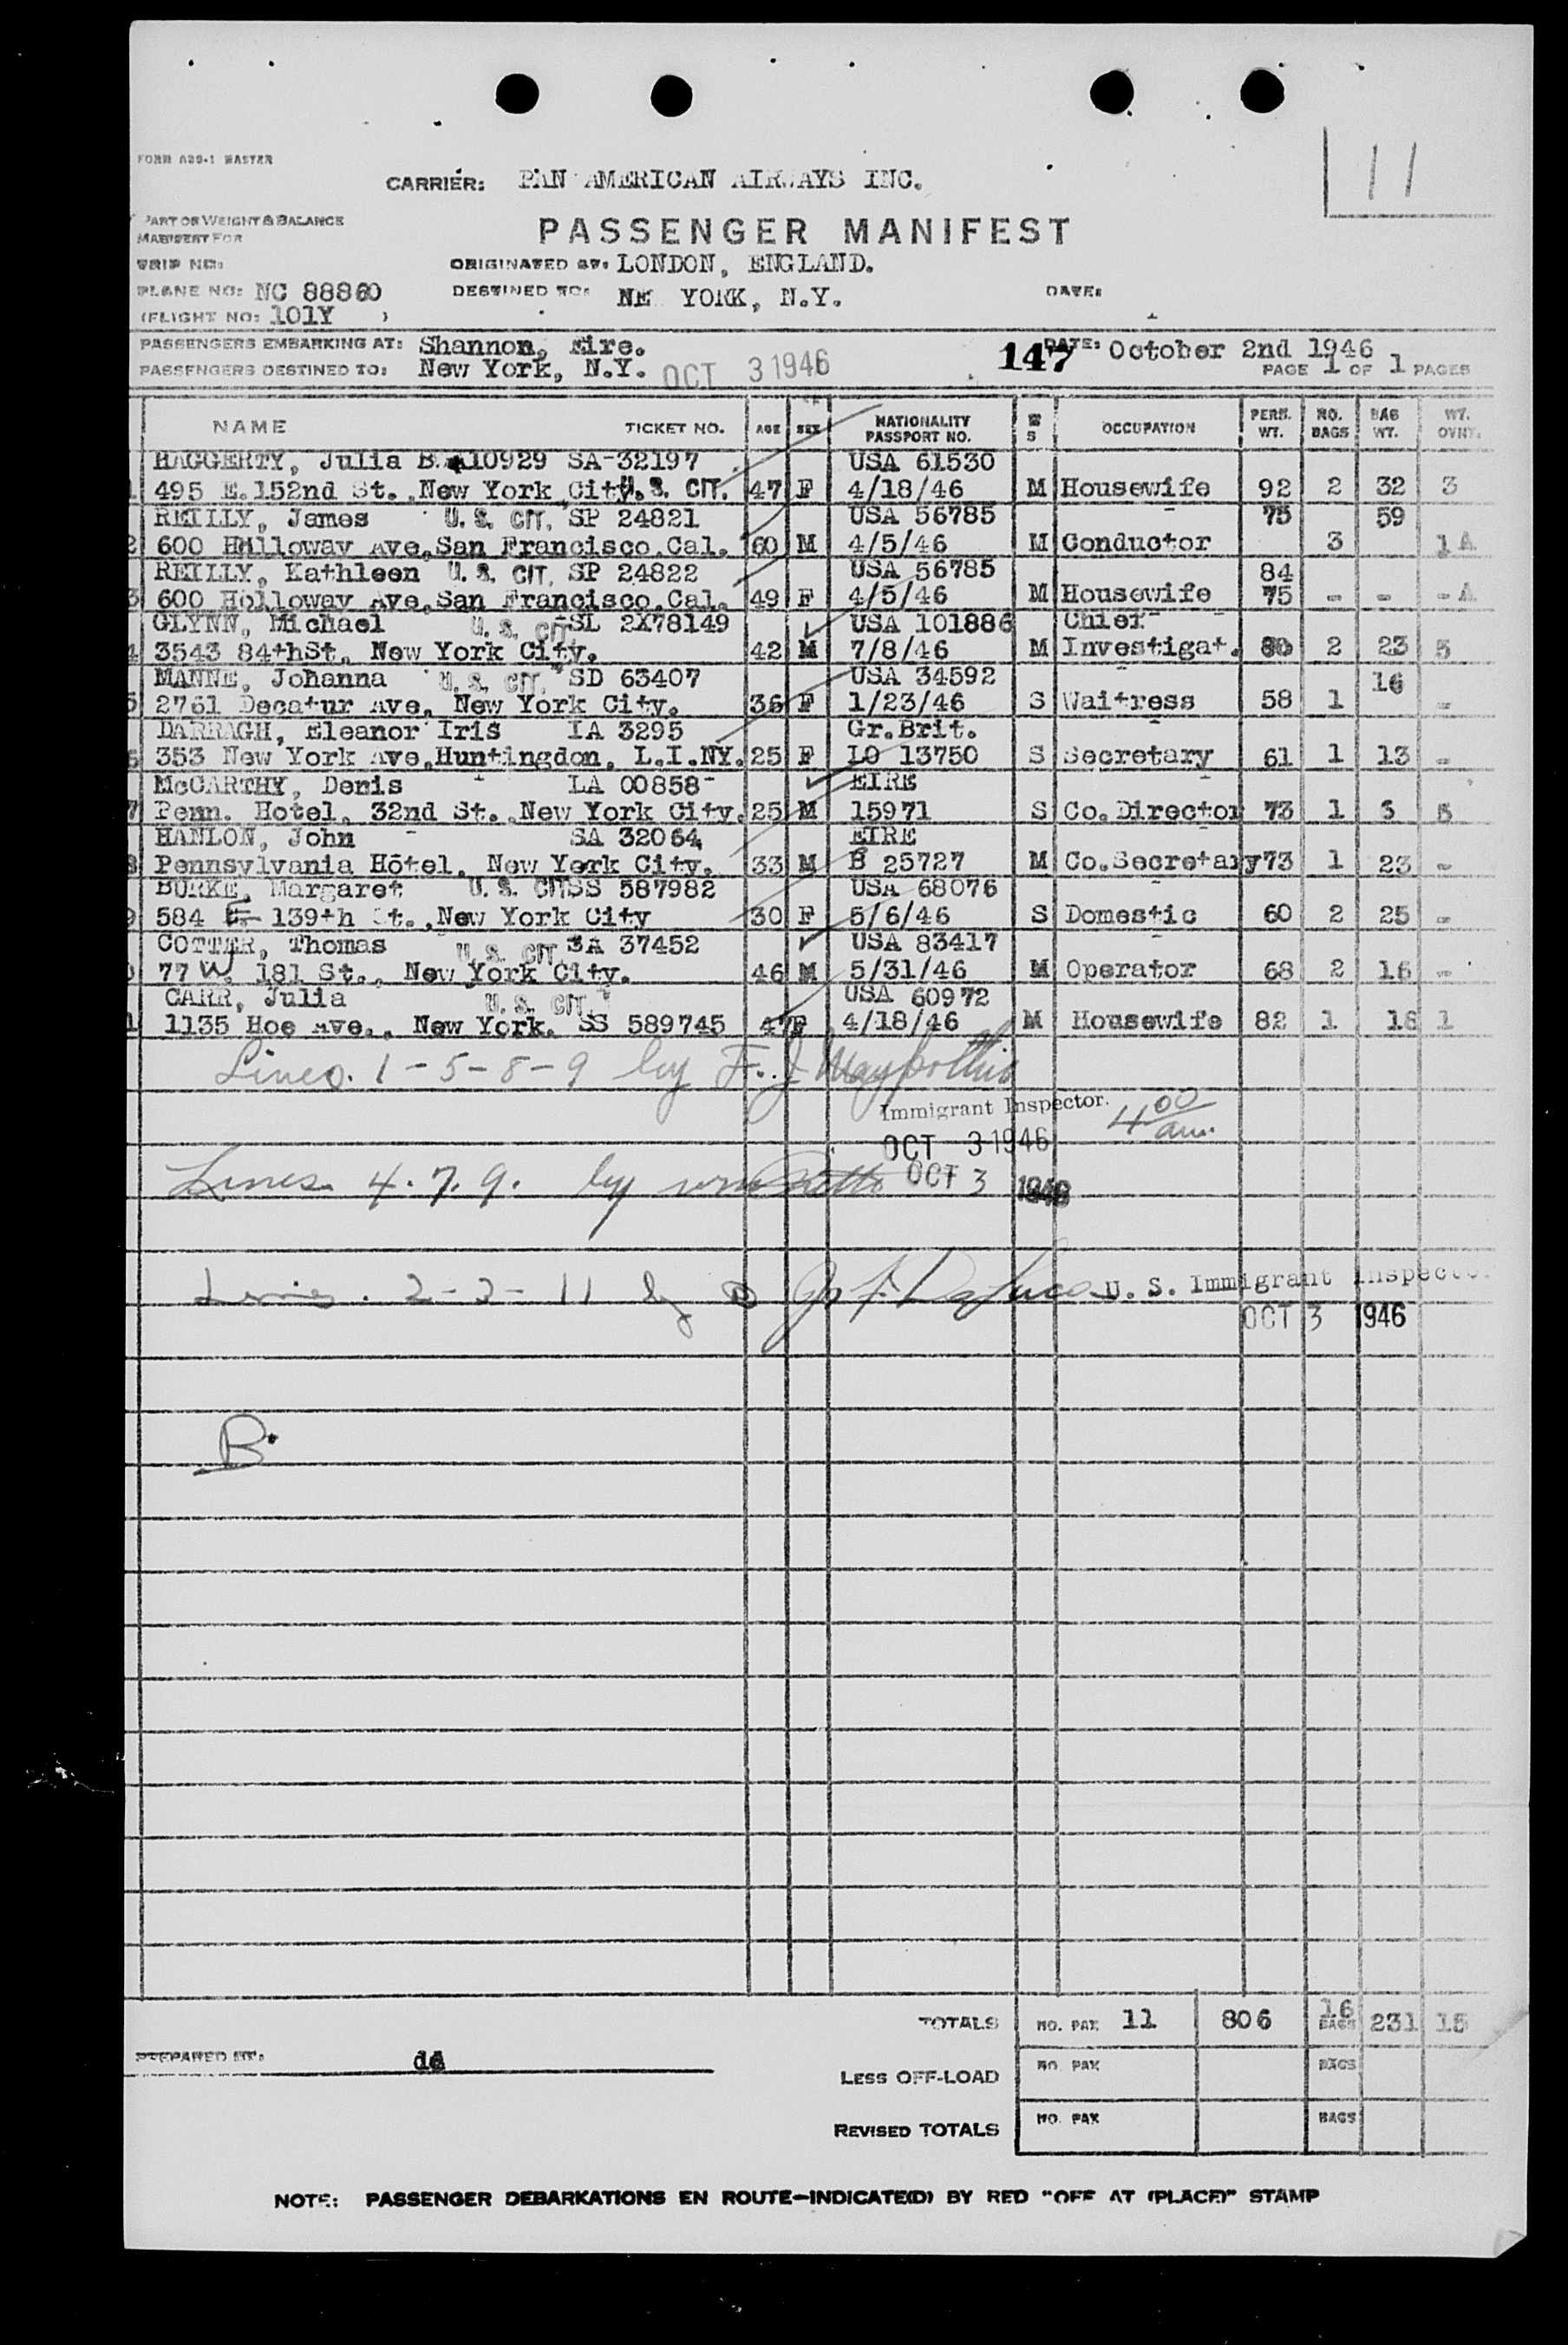 FORM A29-1 MASTER
11
CARRIER: PAN AMERICAN AIRWAYS INC.
PART OF WEIGHT & BALANCE
MANIFEST FOR
PASSENGER MANIFEST
TRIP NO:
ORIGINATED AT: LONDON, ENGLAND.
PLANE NO: NC 88860
DESTINED TO: NE YORK, N.Y.
DATE:
(FLIGHT NO: 101Y )
PASSENGERS EMBARKING AT: Shannon, Eire.
147 DATE: October 2nd 1946
PASSENGERS DESTINED TO: New York, N.Y. OCT 3 1946
PAGE 1 OF 1 PAGES
NAME TICKET NO. AGE SEX NATIONALITY PASSPORT NO. M S OCCUPATION PERS. WT. NO. BAGS BAG WT. WT. OVNT.
HAGGERTY, Julia B. 10929 SA-32197 USA 61530
1 495 E.152nd St., New York City. U.S. CIT. 47 F 4/18/46 M Housewife 92 2 32 3
REILLY, James U.S. CIT. SP 24821 USA 56785 75 59
2 600 Holloway Ave,San Francisco.Cal. 60 M 4/5/46 M Conductor 3 1A
REILLY, Kathleen U.S. CIT. SP 24822 USA 56785 84
3 600 Holloway Ave,San Francisco.Cal. 49 F 4/5/46 M Housewife 75 - - -A
GLYNN, Michael U.S. CIT. SL 2X78149 USA 101886 Chief
4 3543 84thSt. New York City. 42 M 7/8/46 M Investigat. 80 2 23 5
MANNE, Johanna U.S. CIT. SD 63407 USA 34592 16
5 2761 Decatur Ave, New York City. 36 F 1/23/46 S Waitress 58 1 -
DARRAGH, Eleanor Iris IA 3295 Gr.Brit.
6 353 New York Ave,Huntingdon, L.I.NY. 25 F LO 13750 S Secretary 61 1 13 -
McCARTHY, Denis LA 00858- EIRE
7 Penn. Hotel, 32nd St., New York City. 25 M 15971 S Co.Director 73 1 3 5
HANLON, John SA 32064 EIRE
8 Pennsylvania Hotel, New York City. 33 M B 25727 M Co.Secretary 73 1 23 -
BURKE, Margaret U.S. CIT SS 587982 USA 68076
9 584 E 139th St., New York City 30 F 5/6/46 S Domestic 60 2 25 -
COTTER, Thomas U.S. CIT SA 37452 USA 83417
77 W. 181 St., New York City. 46 M 5/31/46 M Operator 68 2 16 -
CARR, Julia U.S. CIT. USA 60972
1 1135 Hoe Ave., New York. SS 589745 47 F 4/18/46 M Housewife 82 1 18 1
Lines. 1-5-8-9 by F. J.
Immigrant Inspector. 4 00 am.
OCT 3 1946
Lines 4.7.9. by OCT 3 1946
Lines. 2-3-11 by U. S. Immigrant Inspector
OCT 3 1946
B.
TOTALS NO. PAX 11 806 16 BAGS 231 15
PREPARED BY: dc
LESS OFF-LOAD NO. PAX BAGS
REVISED TOTALS NO. PAX BAGS
NOTE: PASSENGER DEBARKATIONS EN ROUTE—INDICATE(D) BY RED "OFF AT (PLACE)" STAMP